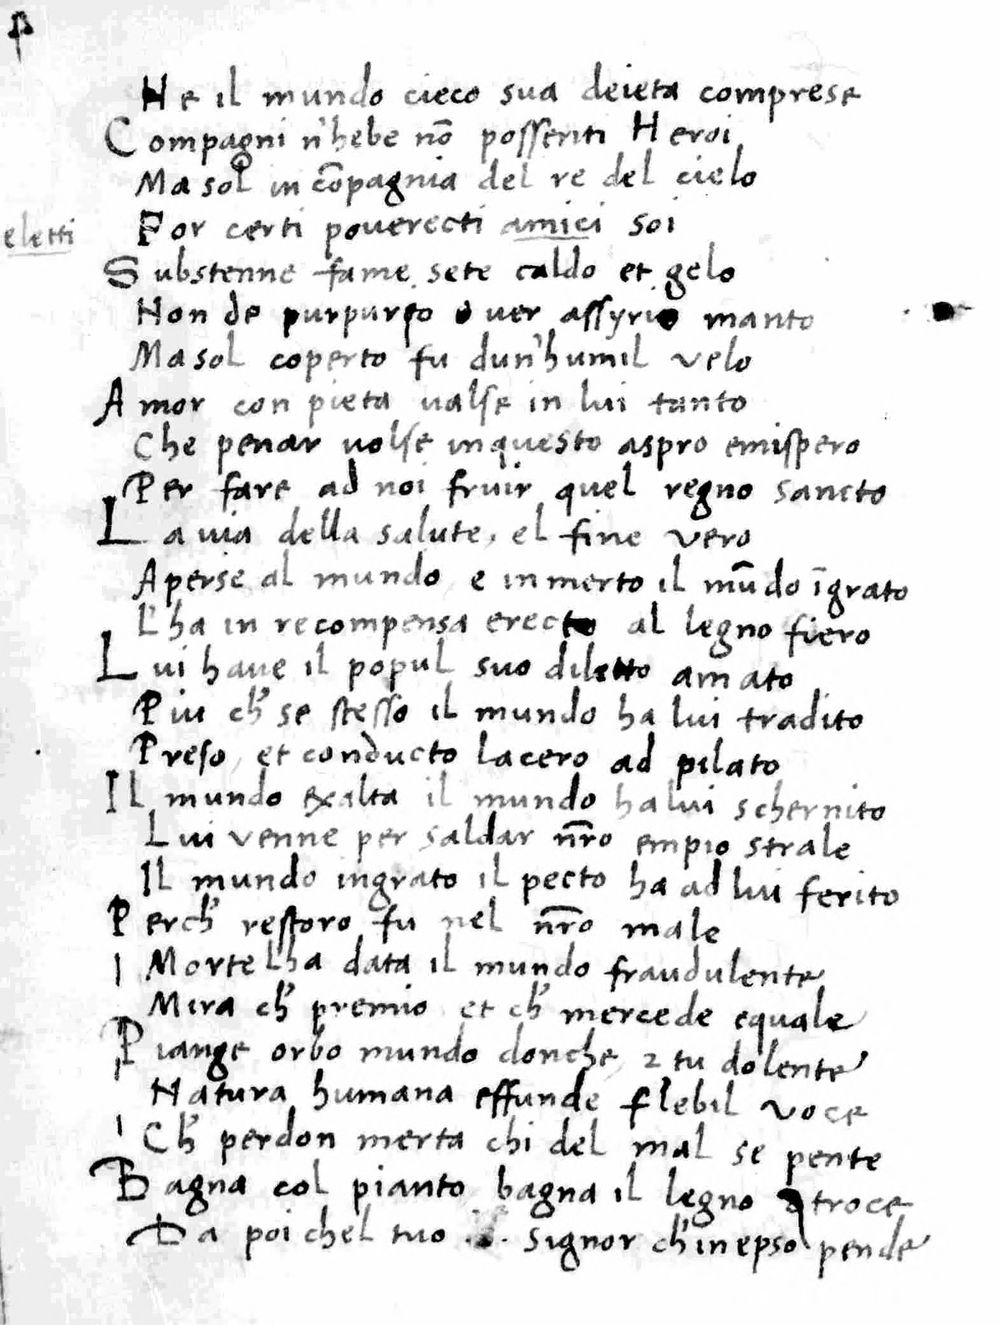 Ne il mundo cieco sua deieta comprese
Compagni n'hebe nō possenti Heroi
Ma sol in cōpagnia del re del cielo
eletti For certi pouerecti amici soi
Substenne fame, sete caldo et gelo
Non de purpureo o uer assyrio manto
Ma sol coperto fu dun'humil velo
Amor con pieta ualse in lui tanto
Che penar uolse inquesto aspro emispero
Per fare ad noi fruir quel regno sancto
La uia della salute, el fine vero
Aperse al mundo e inmerto il mūdo īgrato
L'ha in recompensa erecto al legno fiero
Lui haue il popul suo diletto amato
Piu ch' se stesso il mundo ha lui tradito
Preso, et conducto lacero ad pilato
Il mundo exalta il mundo ha lui schernito
Lui venne per saldar nr̄o empio strale
Il mundo ingrato il pecto ha ad lui ferito
Perch' restoro fu nel nr̄o male
Morte l'ha data il mundo fraudulente
Mira ch' premio et ch' mercede equale
Piange orbo mundo donche, 2 tu dolente
Natura humana effunde flebil voce
Ch' perdon merta chi del mal se pente
Bagna col pianto bagna il legno atroce
Da poi chel tuo signor ch'in epso pende